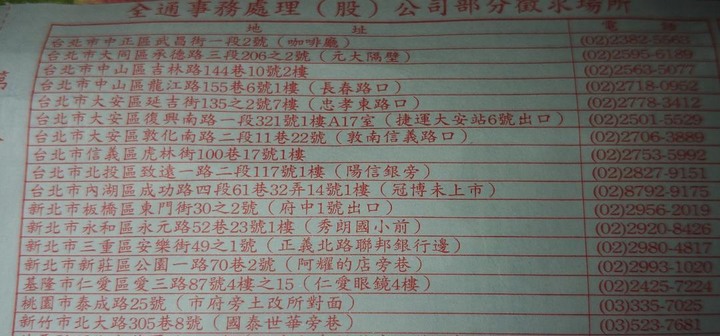 全通事務處理（股）公司部分徵求場所
地址 電話
台北市中正區武昌街一段2號（咖啡廳） (02)2382-5563
台北市大同區承德路三段206之2號（元大隔壁） (02)2595-6189
台北市中山區吉林路144巷10號2樓 (02)2563-5077
台北市中山區龍江路155巷6號1樓（長春路口） (02)2718-0952
台北市大安區延吉街135之2號7樓（忠孝東路口） (02)2778-3412
台北市大安區復興南路一段321號1樓A17室（捷運大安站6號出口） (02)2501-5529
台北市大安區敦化南路二段11巷22號（敦南信義路口） (02)2706-3889
台北市信義區虎林街100巷17號1樓 (02)2753-5992
台北市北投區致遠一路二段117號1樓（陽信銀旁） (02)2827-9151
台北市內湖區成功路四段61巷32弄14號1樓（冠博未上市） (02)8792-9175
新北市板橋區東門街30之2號（府中1號出口） (02)2956-2019
新北市永和區永元路52巷23號1樓（秀朗國小前） (02)2920-8426
新北市三重區安樂街49之1號（正義北路聯邦銀行邊） (02)2980-4817
新北市新莊區公園一路70巷2號（阿耀的店旁巷） (02)2993-1020
基隆市仁愛區愛三路87號4樓之15（仁愛眼鏡4樓） (02)2425-7224
桃園市泰成路25號（市府旁土改所對面） (03)335-7025
新竹市北大路305巷8號（國泰世華旁巷） (03)523-7681